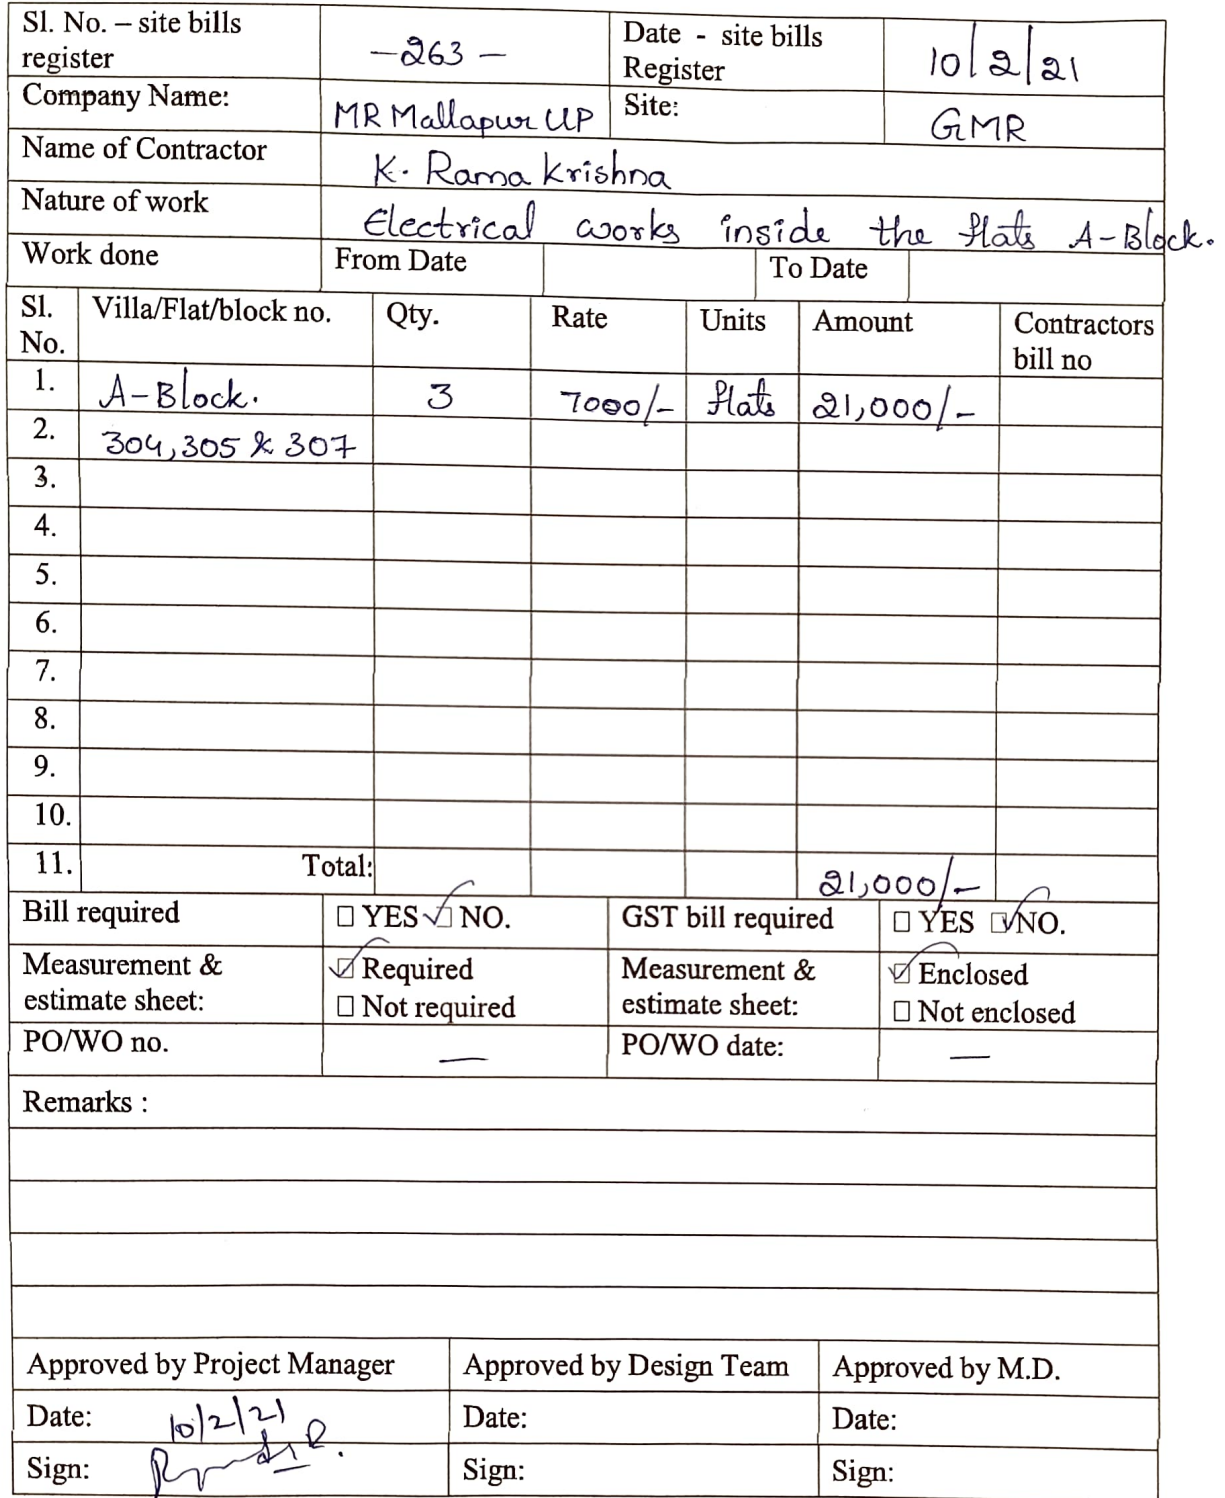 Sl. No. – site bills register -263- Date - site bills Register 10/2/21
Company Name: MR Mallapur UP Site: GMR
Name of Contractor K. Rama Krishna
Nature of work Electrical works inside the flats A-Block.
Work done From Date To Date
Sl. No. Villa/Flat/block no. Qty. Rate Units Amount Contractors bill no
1. A-Block. 3 7000/- flats 21,000/-
2. 304,305 & 307
3.
4.
5.
6.
7.
8.
9.
10.
11. Total: 21,000/-
Bill required ☐ YES ☑ NO. GST bill required ☐ YES ☑ NO.
Measurement & estimate sheet: ☑ Required Measurement & estimate sheet: ☑ Enclosed
☐ Not required ☐ Not enclosed
PO/WO no. — PO/WO date: —
Remarks :
Approved by Project Manager Approved by Design Team Approved by M.D.
Date: 10/2/21 Date: Date:
Sign: Sign: Sign: